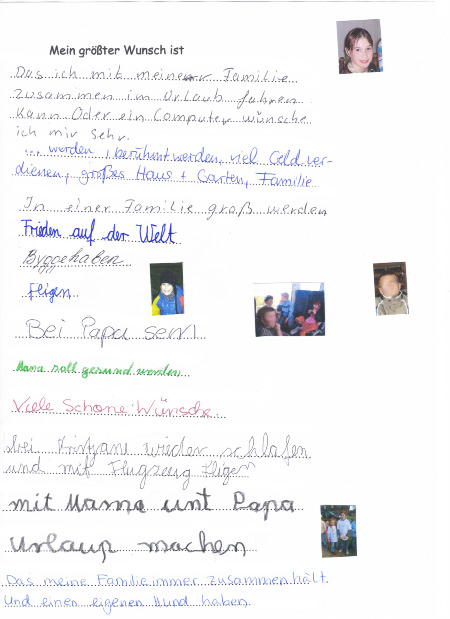 Mein größter Wunsch ist
Das ich mit meiner Familie
zusammen im Urlaub fahren
kann Oder ein Computer wünsche
ich mir sehr.
... werden, berühmt werden, viel Geld ver-
dienen, großes Haus + Garten, Familie
In einer Familie groß werden
Frieden auf der Welt
fligen
Bei Papa sein
Mama soll gesund werden
Viele Schöne Wünsche
bei wieder schlafen
und mit Flugzeug fligen
mit Mama unt Papa
Urlaup machen
Das meine Familie immer zusammen hält.
Und einen eigenen Hund haben.